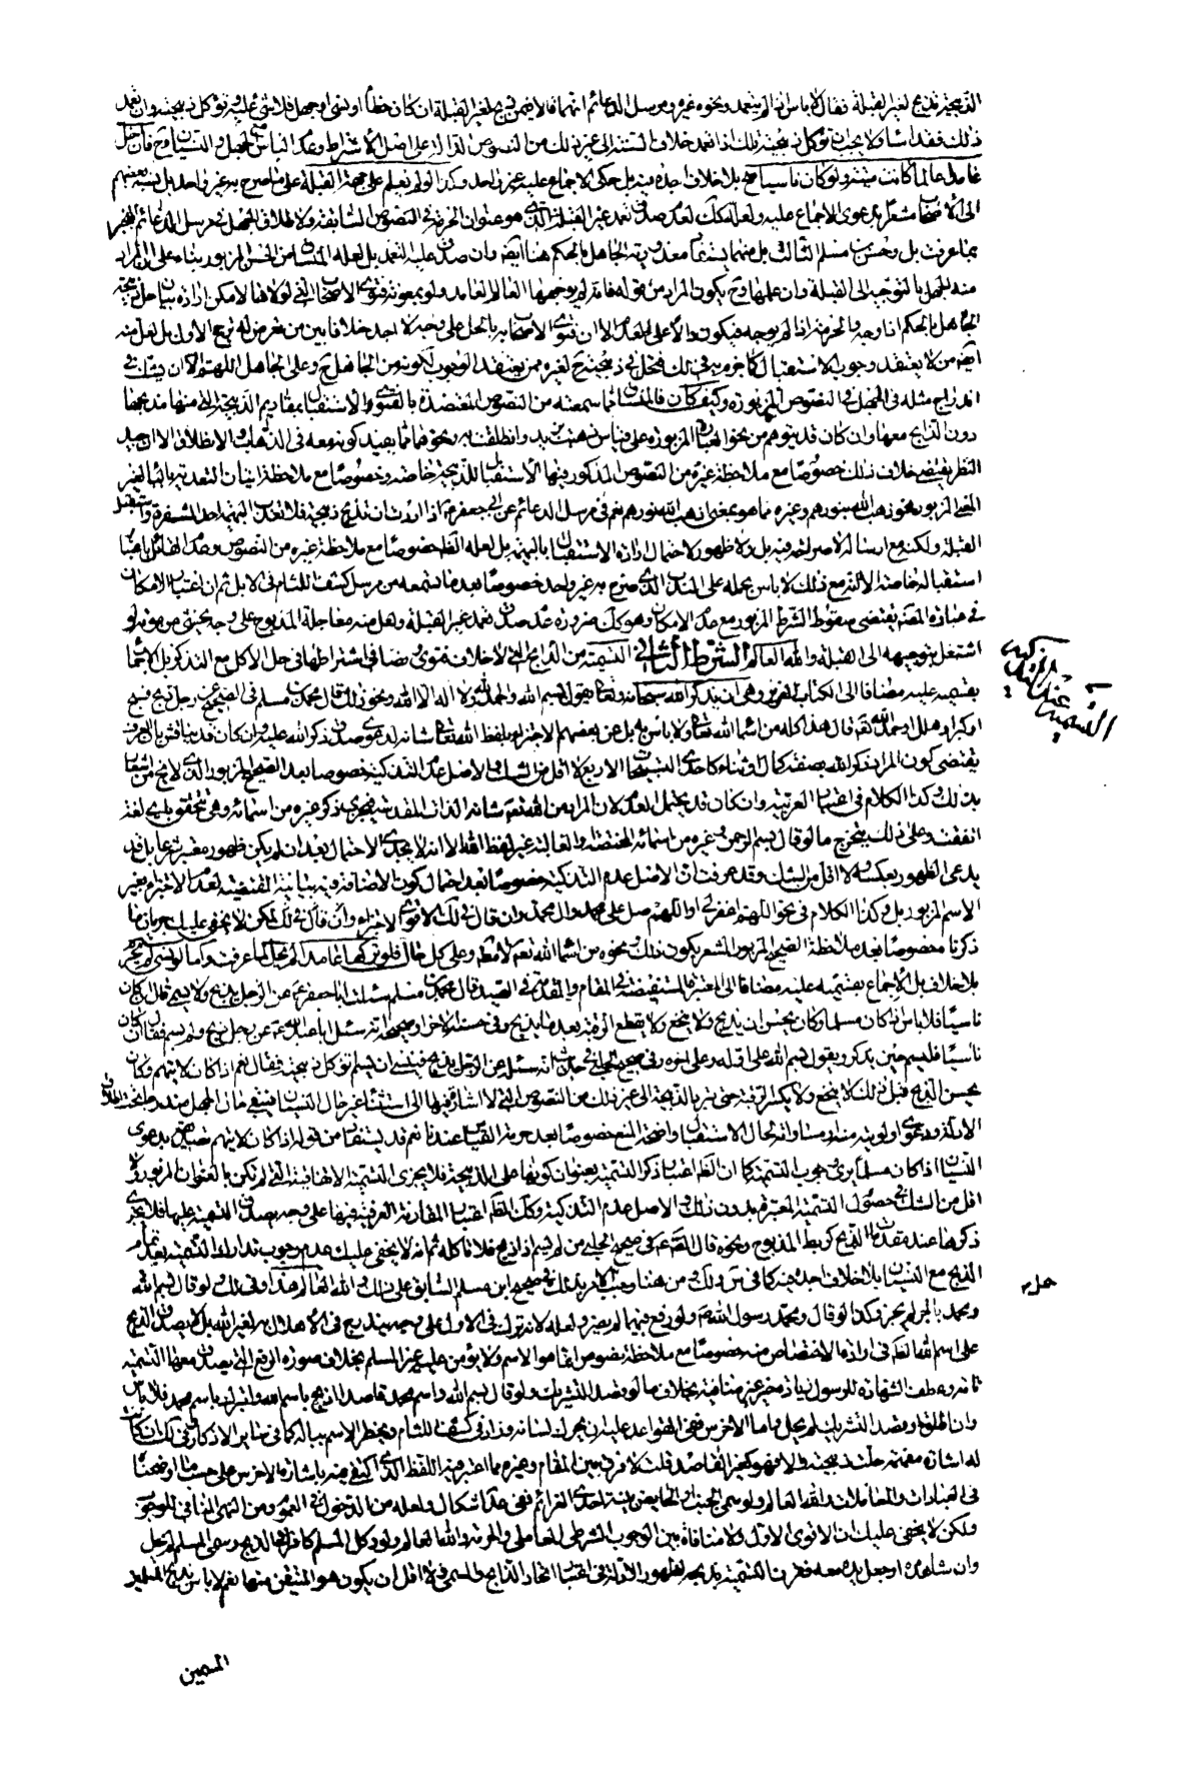 الذبيحة تذبح لغير القبلة فقال لا باس اذا لم يتعمد ونحوه غيره ومرسل الدعائم انهما قالا فيمن ذبح لغير القبلة ان كان خطأ او نسى او جهل فلا شئ عليه وتؤكل ذبيحته وان تعمد
ذلك فقد اساء ولا يجب ان تؤكل ذبيحته تلك اذا تعمد خلاف السنة الى غير ذلك من النصوص الدالة على اصل الاشتراط وعدم الباس مع الجهل والنسيان وح فان اخل
عامدا عالما كانت ميتة ولو كان ناسيا صح بلا خلاف اجده فيه بل حكى الاجماع عليه غير واحد وكذا لو لم يعلم على جهة القبلة على ما صرح به غير واحد بل نسبه بعضهم
الى الاصحاب مشعرا بدعوى الاجماع عليه ولعله كك لعدم صدق تعمد غير القبلة الذي هو عنوان الحرمة في النصوص السابقة ولاطلاق الجهل في مرسل الدعائم المنجبر
بما عرفت بل وحسن بن مسلم الثالث بل منهما يستفاد معذورية الجاهل بالحكم هنا ايضا وان صدق عليه التعمد بل لعله المنساق من الحسن المزبور بناء على ان المراد
منه الجهل بالتوجيه الى القبلة وان علمها وح يكون المراد من قوله فانه لم يوجهها العالم العامد ولو بمعونة فتوى الاصحاب التي لولاها لامكن ارادة بيان حل ذبيحة
الجاهل بالحكم اذا وجه والحرمة اذا لم يوجه فيكون دالا على العدم الا ان فتوى الاصحاب بالحل على وجه لا اجد خلافا بين من تعرض له ترجح الاول بل لعل منه
ايضا من لا يعتقد وجوب الاستقبال كما جزم به في لك فتحل ح ذبيحته لغيره ممن يعتقد الوجوب لكونه من الجاهل ح وعلى الجاهل اللهم الا ان يشك في
اندراج مثله في الجهل في النصوص المزبورة وكيف كان فالمنساق مما سمعته من النصوص المعتضدة بالفتوى الاستقبال بمقاديم الذبيحة التي منها مذبحها
دون الذابح معها وان كان قد يتوهم من نحو العبارة المزبورة على قياس ذهبت بزيد وانطلقت به ونحوهما مما يفيد كونه معه في الذهاب والانطلاق الا ان جيد
النظر يقتضي خلاف ذلك خصوصا مع ملاحظة غيره من النصوص المذكور فيها الاستقبال للذبيحة خاصة وخصوصا مع ملاحظة اتيان التعدية بالباء لغير
المعنى المزبور نحو ذهب الله بنورهم وغيره مما هو بمعنى اذهب الله نورهم نعم في مرسل الدعائم عن ابي جعفر ع اذا اردت ان تذبح ذبيحة فلا تعذب البهيمة احد الشفرة واستقبل
القبلة ولكنه مع ارساله لا صراحة فيه بل ولا ظهور لاحتمال ارادة الاستقبال بالبهيمة بل لعله الظاهر خصوصا مع ملاحظة غيره من النصوص وعدم القائل باعتبار
استقباله خاصة الا انه مع ذلك لا باس بحمله على الندب الذي صرح به غير واحد خصوصا بعدما تسمعه من مرسل كشف اللثام في الابل ثم ان اعتبار الامكان
في عبارة المصنف يقتضي سقوط الشرط المزبور مع عدم الامكان وهو كك ضرورة عدم صدق تعمد غير القبلة وهل منه معاجلة المذبوح على وجه يخشى من موته لو
اشتغل بتوجيهه الى القبلة والله العالم الشرط الثاني التسمية من الذابح التي لا خلاف فتوى ونصا في اشتراطها في حل الاكل مع التذكر بل الاجماع
بقسميه عليه مضافا الى الكتاب العزيز وهي ان يذكر الله سبحانه وتعالى بقول بسم الله والحمد لله ولا اله الا الله ونحو ذلك قال محمد بن مسلم في الصحيح عن رجل ذبح فسبح
او كبر او هلل او حمد الله تعالى قال هذا كله من اسماء الله تعالى ولا باس به بل عن بعضهم الاجتزاء بلفظ الله تعالى شانه لدعوى صدق ذكر الله عليه وان كان قد يناقش بان العرف
يقتضي كون المراد ذكر الله بصفة كمال او ثناء كاحدى التسبيحات الاربع لا اقل من الشك والاصل عدم التذكية خصوصا بعد الصحيح المزبور الذي لا يخ من اشعار
بذلك وكذا الكلام في اعتبار العربية وان كان قد يحتمل العدم لان المراد من الله تعالى شانه الذات المقدسة فيجزي ذكر غيره من اسمائه وهي تتحقق باي لغة
اتفقت وعلى ذلك يتخرج ما لو قال بسم الرحمن وغيره من اسمائه المختصة والغالبة غير لفظ الله الا انه لا يجدي الاحتمال بعد ان لم يكن ظهور معتبر شرعا بل قد
يدعى الظهور بعكسه ولا اقل من الشك وقد عرفت ان الاصل عدم التذكية خصوصا بعد احتمال كون الاضافة فيه بيانية المقتضية لعدم الاجتزاء بغير
الاسم المزبور بل وكذا الكلام في نحو اللهم اغفر لي او اللهم صل على محمد وال محمد وان قال في لك الاقوى الاجزاء وان قال في ذلك لكن لا يخفى عليك جريان ما
ذكرنا خصوصا بعد ملاحظة الصحيح المزبور المشعر بكون ذلك ونحوه من اسماء الله نعم لا تعظيم وعلى كل حال فلو تركها عامدا لم تحل لما عرفت واما لو نسى لم تحرم
بلا خلاف بل الاجماع بقسميه عليه مضافا الى المعتبرة المستفيضة في المقام والمتقدمة في الصيد قال محمد بن مسلم سئلت ابا جعفر ع عن الرجل يذبح ولا يسمى قال ان كان
ناسيا فلا باس اذا كان مسلما وكان يحسن ان يذبح ولا ينخع ولا يقطع الرقبة بعدما يذبح وفي حسنه الاخر او صحيحه انه سئل ابا عبد الله ع عن رجل ذبح ولم يسم فقال ان كان
ناسيا فليسم حين يذكر ويقول بسم الله على اوله وعلى اخره وفي صحيح الحلبي في حديث انه سئله عن الرجل يذبح فينسى ان يسم تؤكل ذبيحته فقال نعم اذا كان لا يتهم وكان
يحسن الذبح قبل ذلك ولا ينخع ولا يكسر الرقبة حتى تبرد الذبيحة الى غير ذلك من النصوص التي لا اشارة فيها الى استثناء غير حال النسيان فيبقى حال الجهل مندرجا تحت اطلاق
الادلة ودعوى اولويته منه او مساواته لحال الاستقبال واضحة المنع خصوصا بعد حرمة القياس عندنا نعم قد يستفاد من قوله اذا كان لا يتهم تصديق دعوى
النسيان اذا كان مسلما يرى وجوب التسمية كما ان الظاهر اعتبار ذكر التسمية بعنوان كونها على الذبيحة فلا يجزى التسمية الاتفاقية التي لم تكن بالعنوان المزبور ولا
اقل من الشك في حصول التسمية المعتبرة بدون ذلك والاصل عدم التذكية وكك الظاهر اعتبار المقارنة العرفية فيها على وجه يصدق التسمية عليها فلا يجزى
ذكرها عند مقدمات الذبح كربط المذبوح ونحوه قال الصادق ع في صحيح الحلبي من لم يسم اذا ذبح فلا تاكله ثم انه لا يخفى عليك عدم وجوب تدارك التسمية بعد تمام
الذبح مع النسيان بلا خلاف اجده فيه كما في س وذلك ومن هنا وجب حمل الامر بذلك في صحيح ابن مسلم السابق على ذلك والله العالم هذا وفي لك ولو قال بسم الله
ومحمد بالجر لم يجز وكذا لو قال ومحمد رسول الله ص ولو رفع فيهما لم يضر ولعله لانه شرك في الاول على وجه يندرج في الاهلال به لغير الله بل لا يصدق الذبح
على اسم الله الظاهر في ارادة الاختصاص منه خصوصا مع ملاحظة نصوص انما هو الاسم ولا يؤمن عليه غير المسلم بخلاف صورة الرفع التي يصدق معها التسمية
تامة وعطف الشهادة للرسول زيادة خير غير منافية بخلاف ما لو قصد التشريك ولو قال بسم الله واسم محمد قاصدا اذبح باسم الله واتبرك باسم محمد فلا باس
وان اطلق او قصد التشريك لم يحل واما الاخرس ففي القواعد عليه ان يحرك لسانه وزاد في كشف اللثام ويخطر الاسم بباله كما في سائر الاذكار وفي لك ان كان
له اشارة مفهمة حلت ذبيحته والا فهو كغير القاصد قلت لا فرق بين المقام وغيره مما اعتبر فيه اللفظ الذي اكتفى فيه باشارة الاخرس على حسب ما اوضحناه
في العبادات والمعاملات والله العالم ولو سمى الجنب او الحايض بنية احدى العزائم ففي عد اشكال ولعله من الدخول في العموم ومن النهى المنافي للوجوب
ولكن لا يخفى عليك ان الاقوى الاول ولا منافاة بين الوجوب الشرطي للعاملي والحرمة والله العالم ولو وكل المسلم كافرا في الذبح وسمى المسلم لم يحل
وان شاهده او جعل يده معه فقرن التسمية بذبحه لظهور الادلة في اعتبار اتحاد الذابح والمسمى ولا اقل ان يكون هو المتيقن منها نعم لا باس بذبح المسلم
التسمية عند التذكية
حل به
المسمين